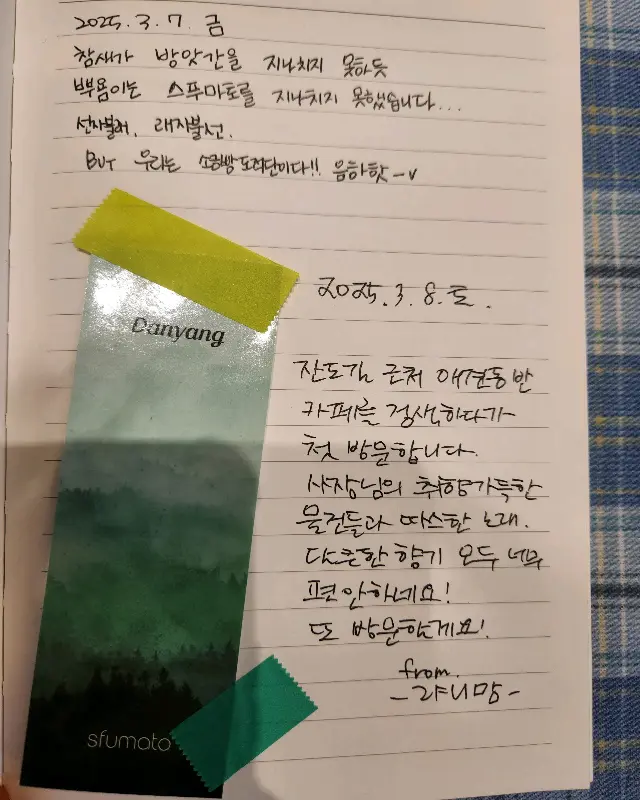 2025. 3. 7. 금
참새가 방앗간을 지나치지 못하듯
뿌욤이는 스푸마토를 지나치지 못했습니다...
선자불래, 래자불선.
BUT 우리는 소금빵 도적단이다!! 음하핫 -v
Danyang
sfumato
2025. 3. 8. 토.
잔도길 근처 애견동반
카페를 검색하다가
첫 방문합니다.
사장님의 취향가득한
물건들과 따스한 노래.
다큰한 향기 모두 너무
편안하네요!
또 방문할게요!
from.
-라니맘-